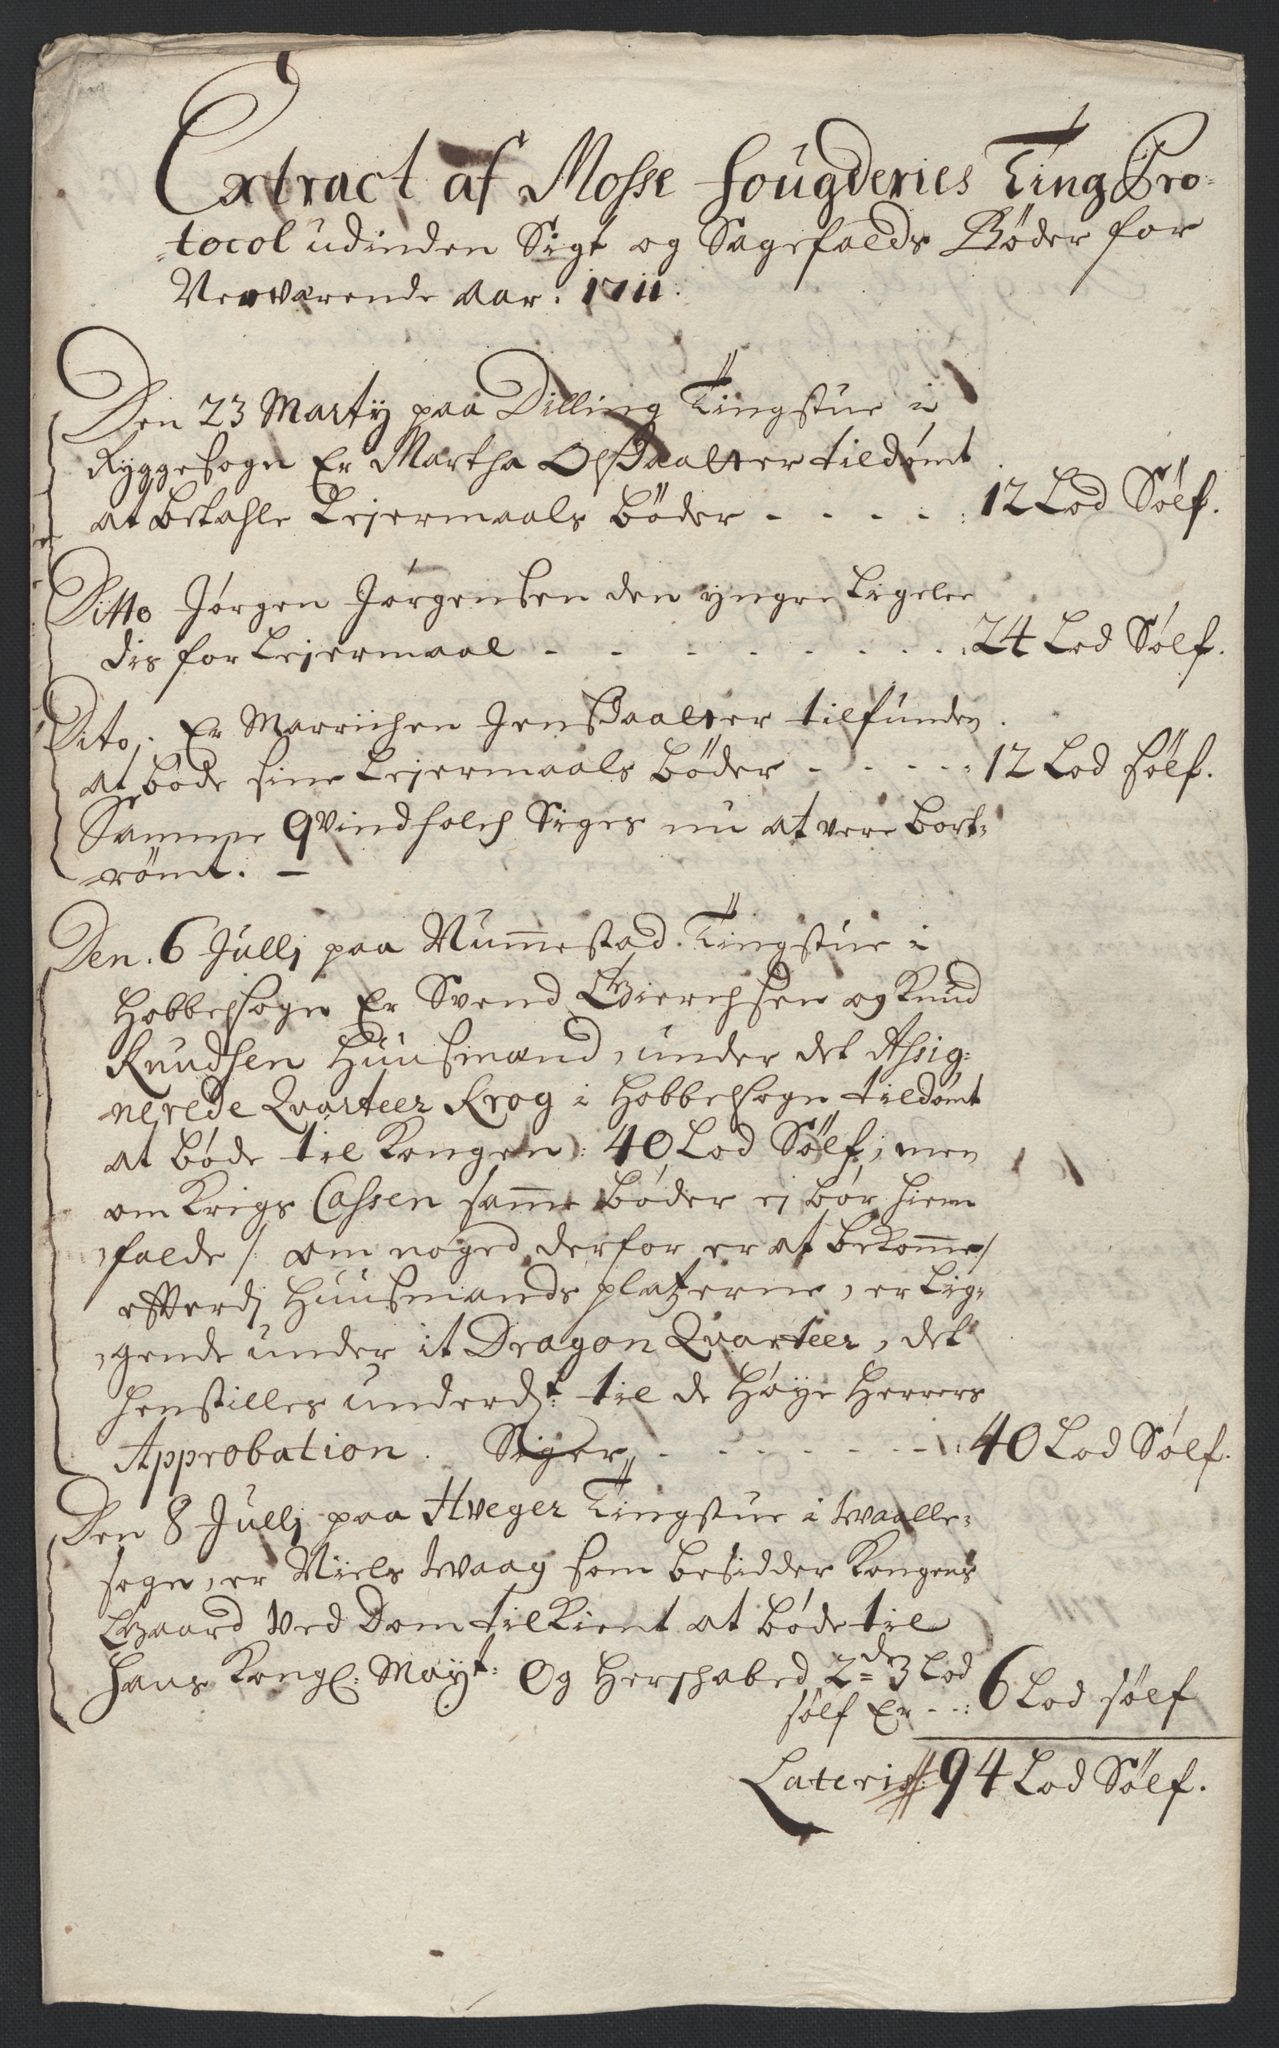 Extract af Mosse fougderies Ting Pro-
tocol udinden Sigt og Sagefalds Bøder for
Nerwærende Aar: 1711.
Den 23 Marty paa Dilling Tingstue i
Ryggesogn Er Martha Olsdaatter tildømt
at betahle Leiermaals bøder - - - - : 12 Lod Sølf.
Ditto Jørgen Jørgensen den yngre Ligele
dis for Leiermaal - - - - - - - 24 Lod Sølf.
Dito, Er Marrichen Jensdaatter tilfunden
at bøde sine Leiermaals bøder - - - - 12 Lod sølf.
Samme Qvindfolch Siges nu at vere bort-
rømt. -
Den 6 Julij paa Nummestad Tingstue i
Hobbelsogn Er Svend Gierchsen og Knud
Knudsen Huusmænd, under det Assig-
nerede Qvarteer Krog i Hobbelsogn tildømt
at bøde til Kongen: 40 Lod Sølf, men
om Krigs Cassen samme bøder ej bør hiem
falde /: om noged derfor er at bekomme /
efterdj Huusmands platzerne, er Lig-
gende under it Dragon Qvarteer, det
henstilles underd:t til de Høye Herrers
Approbation. Siger - - - - - - : 40 Lod Sølf.
Den 8 Julij paa Hveger Tingstue i Waalle-
sogn, er Niels Waag som besidder Kongens
Gaard Ved Dom tilkient at bøde til
Hans Kongl: Mayt: Og Herschabed 2de 3 Lod
sølf Er - - : 6 Lod sølf
Lateris: 94 Lod Sølf.